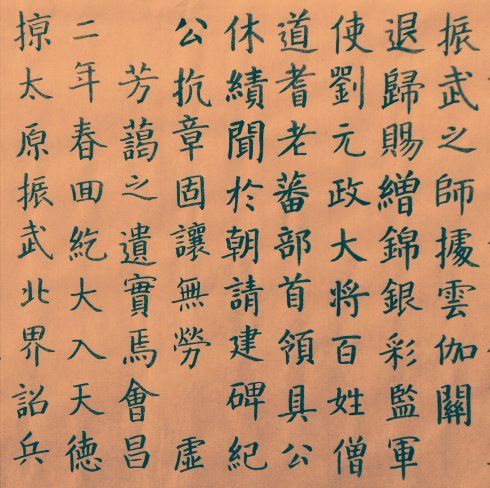 振武之師據雲伽關
退歸賜繒錦銀彩監軍
使劉元政大将百姓僧
道耆老蕃部首領具公
休績聞於朝請建碑紀
公抗章固讓無勞 虛
芳藹之遺實焉會昌
二年春囬紇大入天德
掠太原振武北界詔兵